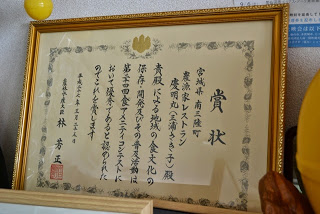 賞状
宮城県 南三陸町
農漁家レストラン
慶明丸(三浦さき子)殿
貴殿による地域の食文化の
保存・開発及びその普及活動は
第二十四回食アメニティコンテストに
おいて優秀であると認められた
のでこれを賞します
平成二十七年三月二十六日
農林水産大臣 林 芳正